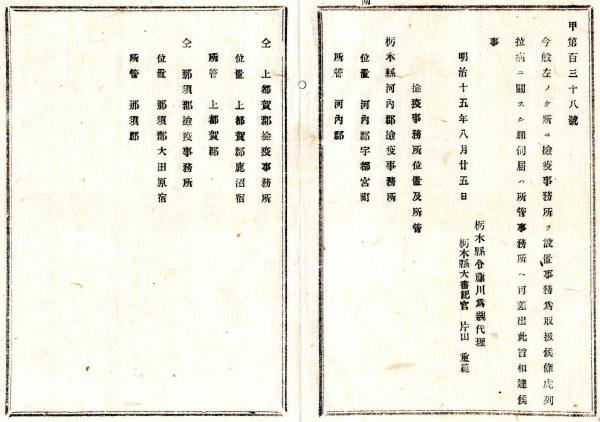 甲第百三十八號
今般左ノケ所ニ撿疫事務所ヲ設置事務爲取扱候條虎列
拉病ニ關スル願伺届ハ所管事務所ヘ可差出此旨相達候
事
明治十五年八月廿五日
栃木縣令藤川爲親代理
栃木縣大書記官 片山重範
撿疫事務所位置及所管
栃木縣河內郡撿疫事務所
位置 河內郡宇都宮町
所管 河內郡
仝 上都賀郡撿疫事務所
位置 上都賀郡鹿沼宿
所管 上都賀郡
仝 那須郡撿疫事務所
位置 那須郡大田原宿
所管 那須郡